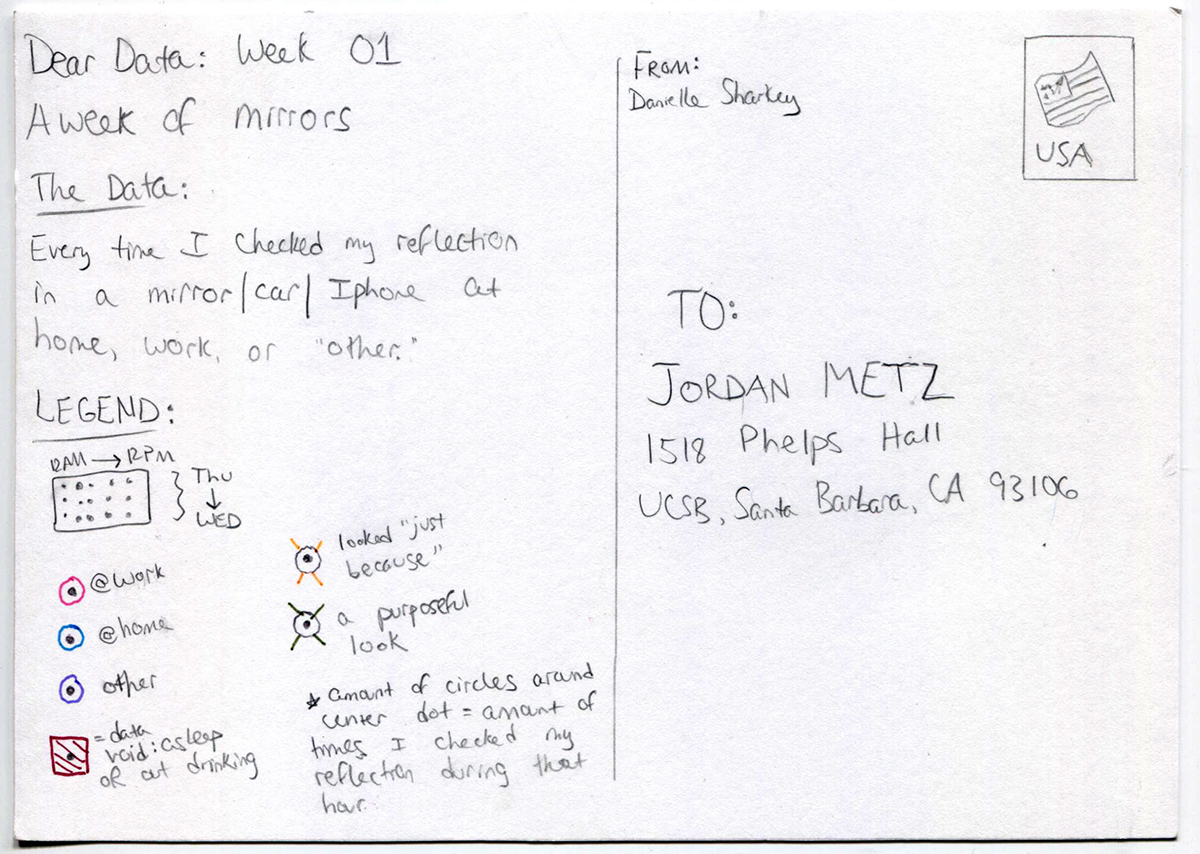 Dear Data: Week 01
A week of mirrors
The Data:
Every time I checked my reflection
in a mirror/car/Iphone at
home, work, or "other."
LEGEND:
12AM → 12PM
Thu
↓
WED
@work
@home
other
= data
void: asleep
or out drinking
looked "just
because"
a purposeful
look
* amount of circles around
center dot = amount of
times I checked my
reflection during that
hour.
FROM:
Danielle Sharkey
USA
TO:
JORDAN METZ
1518 Phelps Hall
UCSB, Santa Barbara, CA 93106